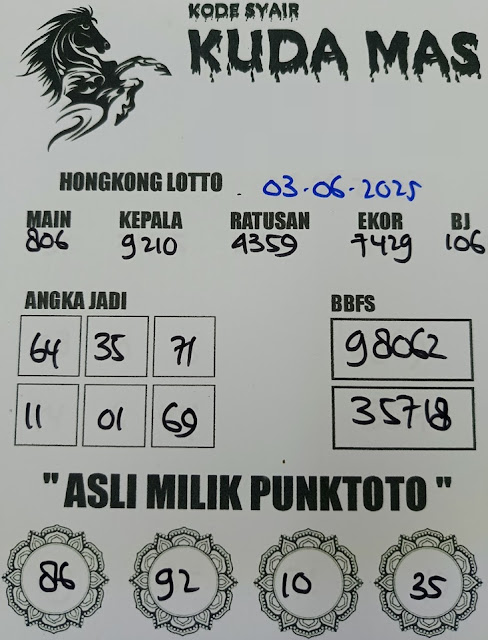 KODE SYAIR
KUDA MAS
HONGKONG LOTTO . 03-06-2025
MAIN KEPALA RATUSAN EKOR BJ
806 9210 4359 7429 106
ANGKA JADI BBFS
64 35 71 98062
11 01 69 35718
" ASLI MILIK PUNKTOTO "
86 92 10 35